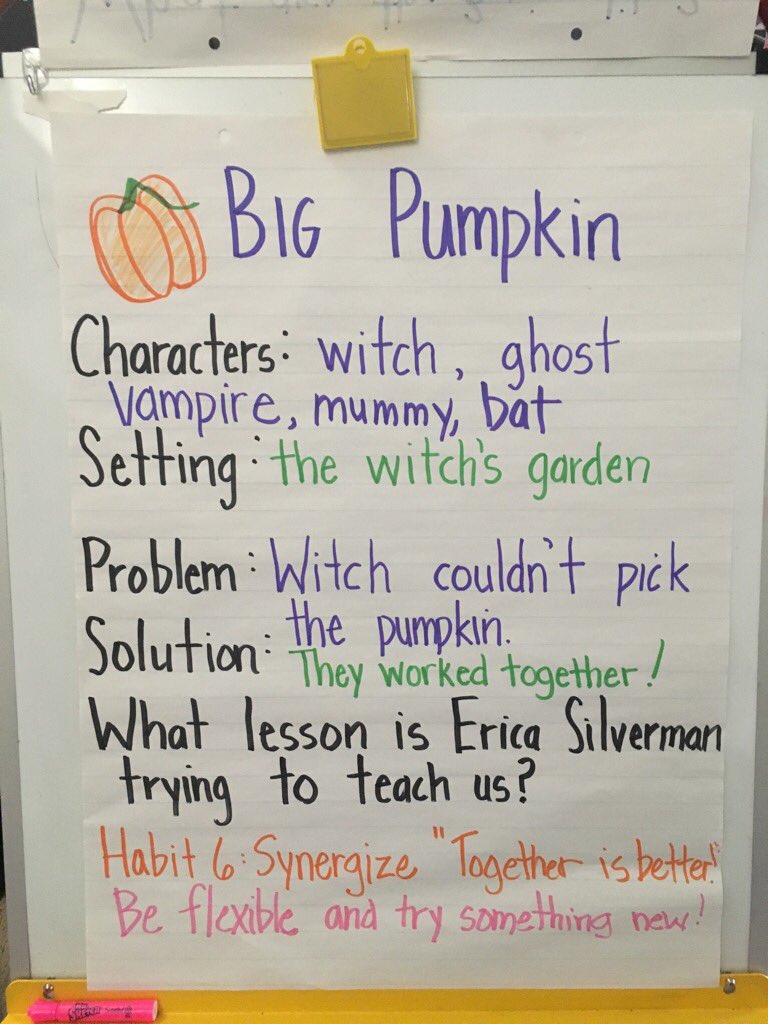 BIG Pumpkin
Characters: witch, ghost
vampire, mummy, bat
Setting: the witch's garden
Problem: Witch couldn't pick
the pumpkin.
Solution: They worked together!
What lesson is Erica Silverman
trying to teach us?
Habit 6: Synergize "Together is better!"
Be flexible and try something new!